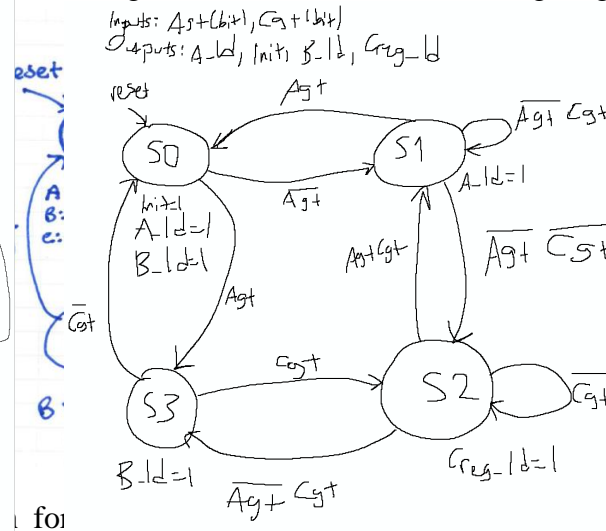 Inputs: Agt(bit), Cgt(bit)
Outputs: A_ld, Init, B_ld, Creg_ld
eset
reset
Agt
S0
S1
A̅g̅t̅ Cgt
A̅g̅t̅
A_ld=1
Init=1
A_ld=1
B_ld=1
A
B:
c:
AgtCgt
A̅g̅t̅ C̅g̅t̅
Agt
C̅g̅t̅
Cgt
S3
S2
C̅g̅t̅
B
B_ld=1
A̅g̅t̅ Cgt
Creg_ld=1
for